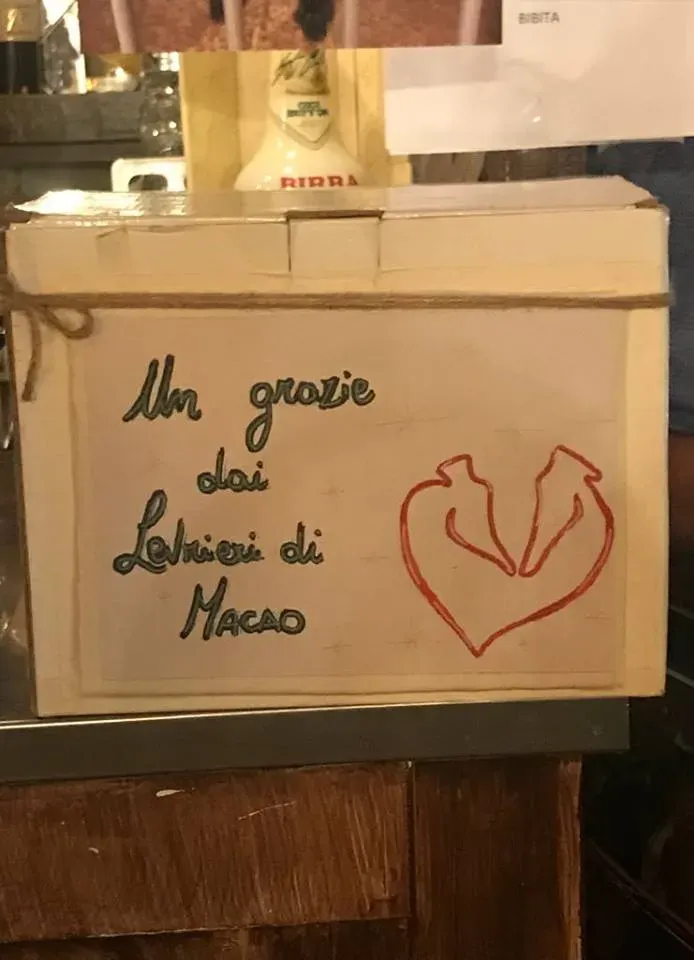 BIBITA
BIRRA
Un grazie
dai
Levrieri di
MACAO